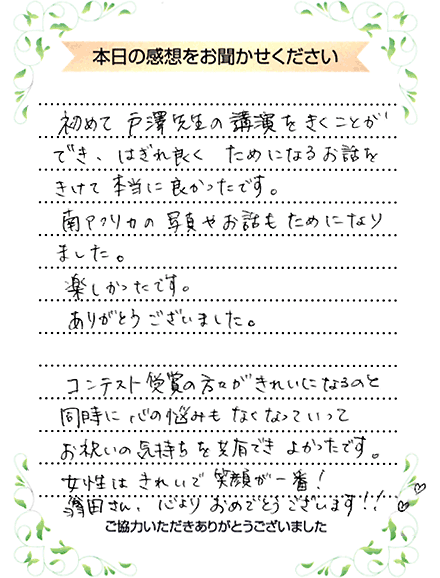 本日の感想をお聞かせください
初めて 戸澤先生の講演をきくことが
でき、はぎれ良く ためになるお話を
きけて 本当に良かったです。
南アフリカの写真やお話も ためになり
ました。
楽しかったです。
ありがとうございました。
コンテスト受賞の方々がきれいになるのと
同時に 心の悩みも なくなっていって
お祝いの気持ちを共有でき よかったです。
女性は きれいで 笑顔が一番!
翁田さん、心より おめでとうございます!! ♡ ♡
ご協力いただきありがとうございました